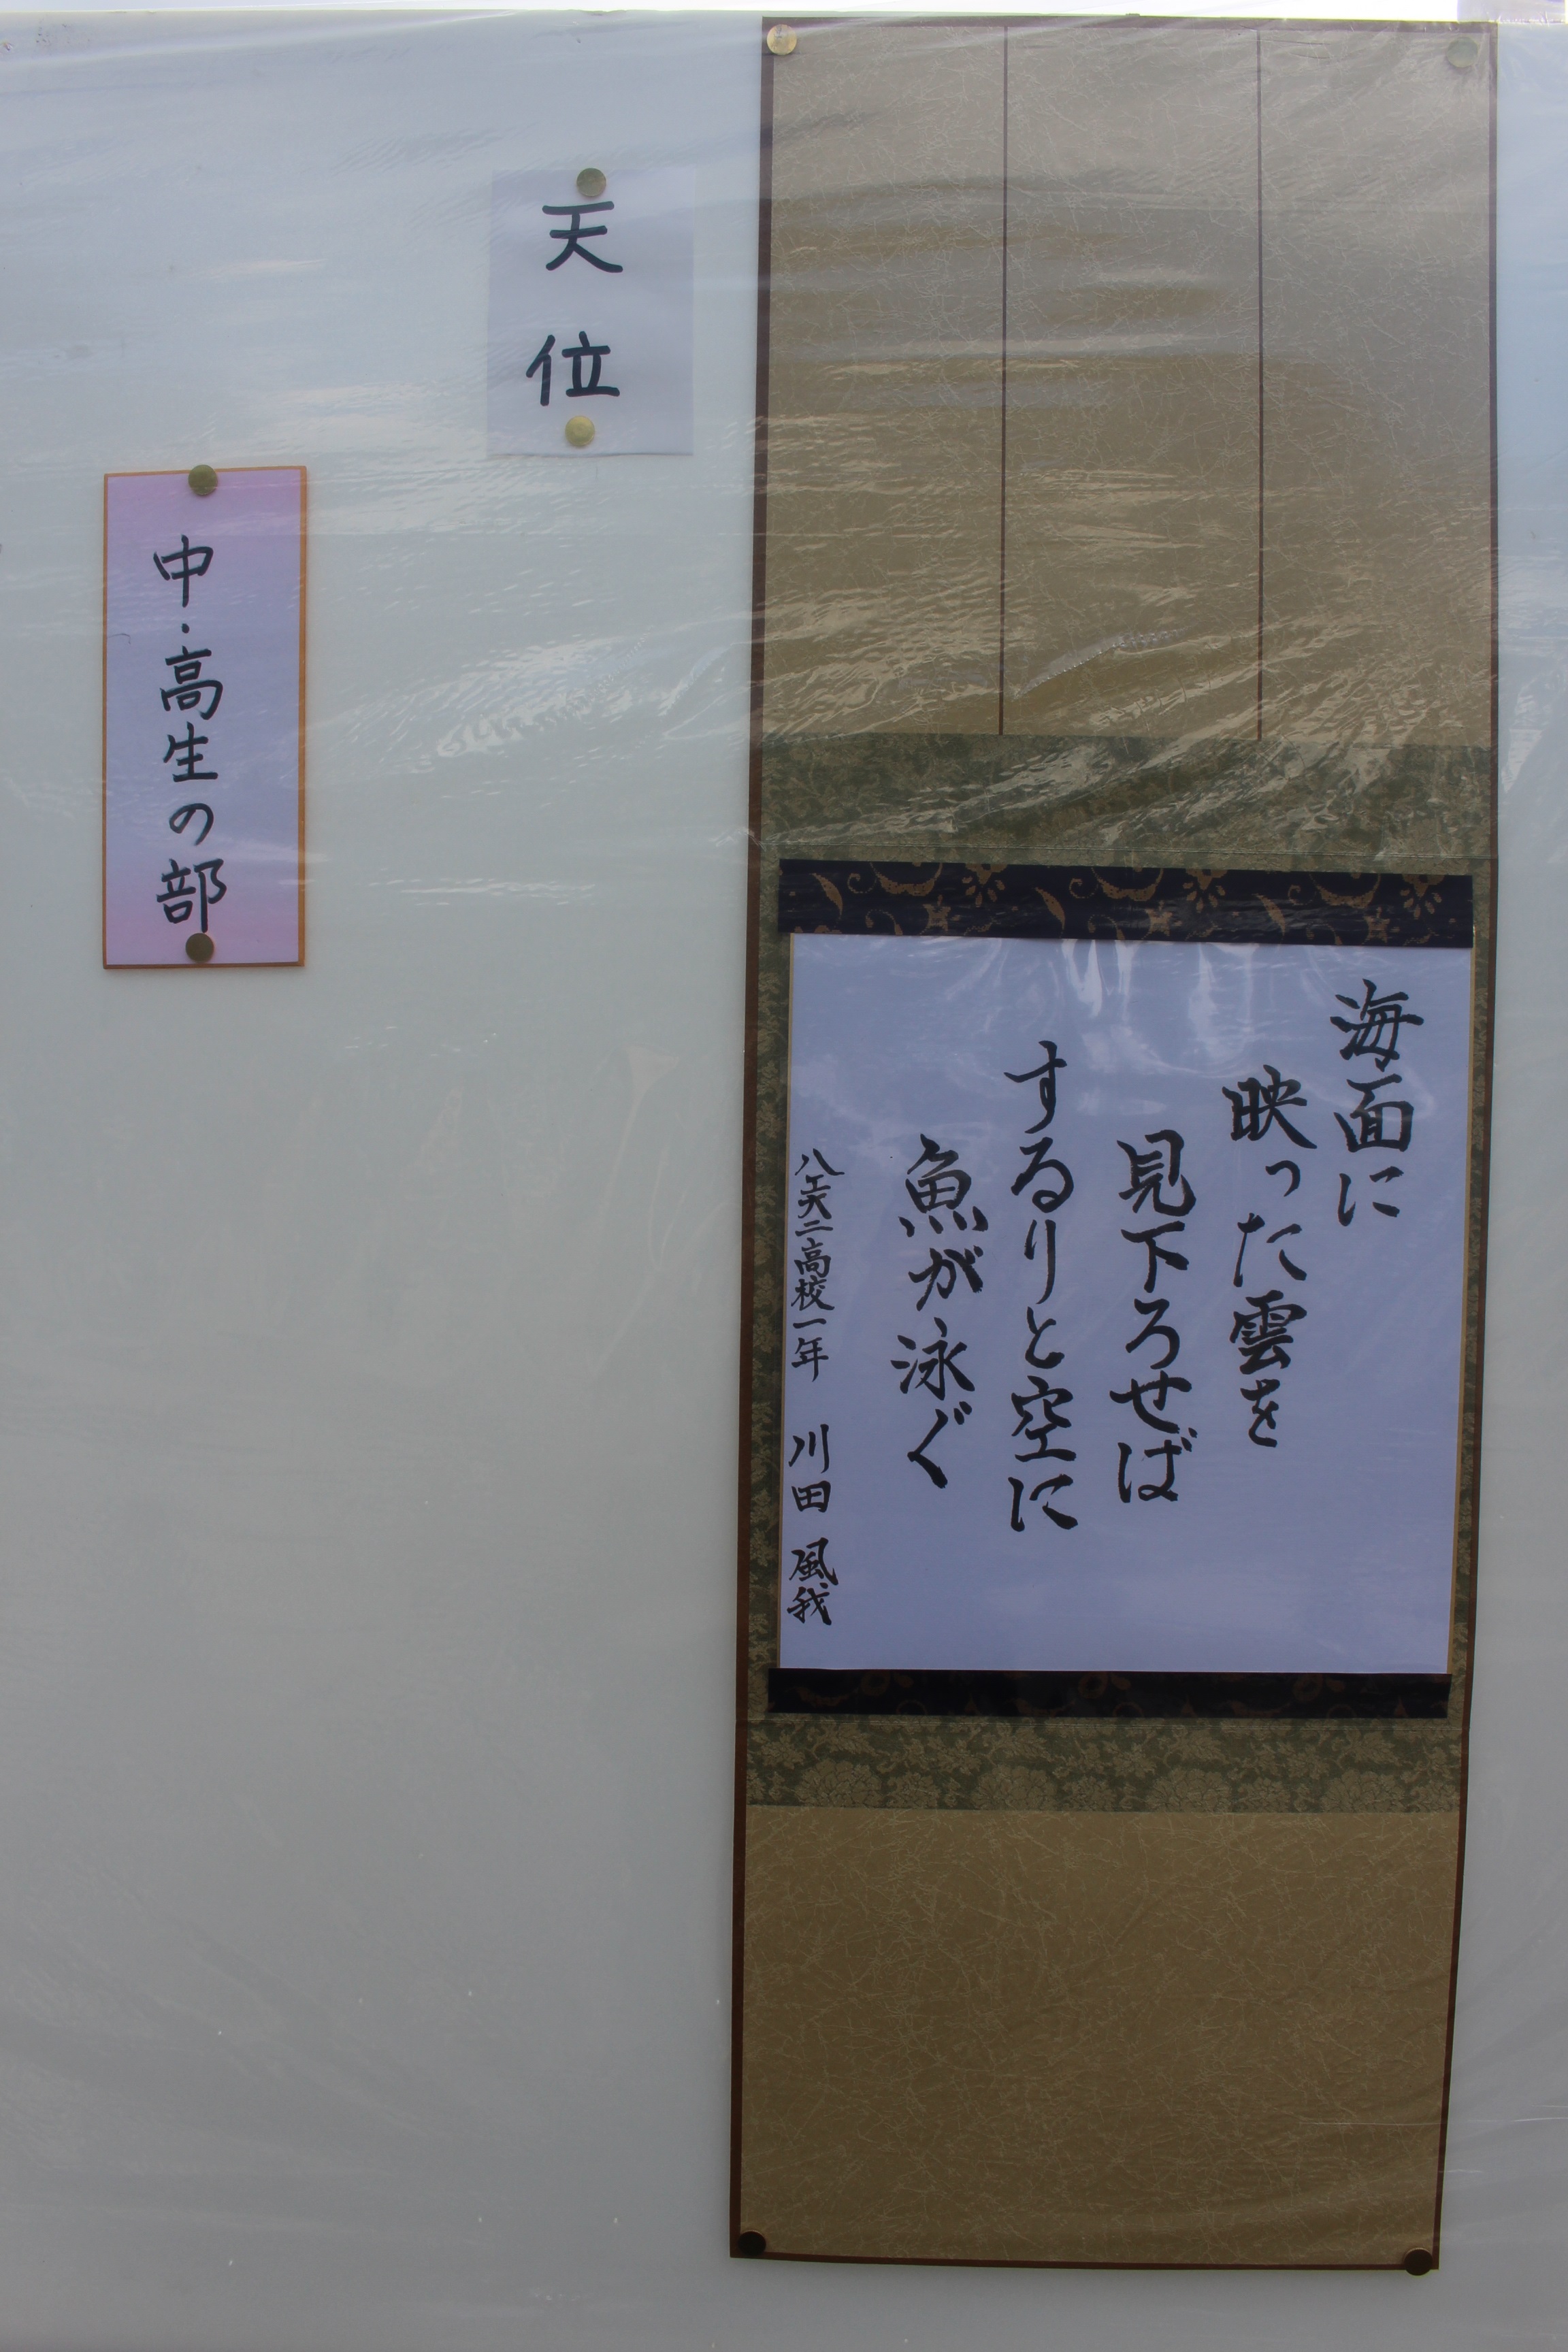 海面に
映った雲を
見下ろせば
するりと空に
魚が泳ぐ
八工大二高校一年 川田 風我
天位
中・高生の部